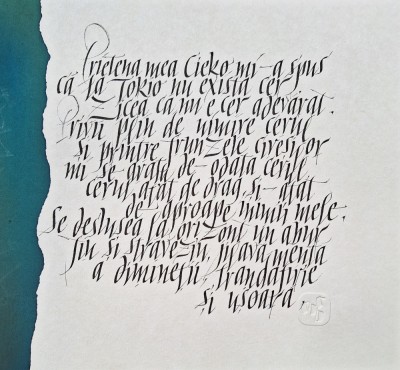 Prietena mea Cieko mi-a spus
că la Tokio nu există cer
Zicea că nu e cer adevărat.
Privii plin de uimire cerul
Și printre frunzele cireșilor
mi se arătă de-odată cerul
cerul atât de drag și-atât
de-aproape inimii mele.
Se deslușea la orizont un abur
lin și străveziu, prava menta
a dimineții, trandafirie
și ușoară.